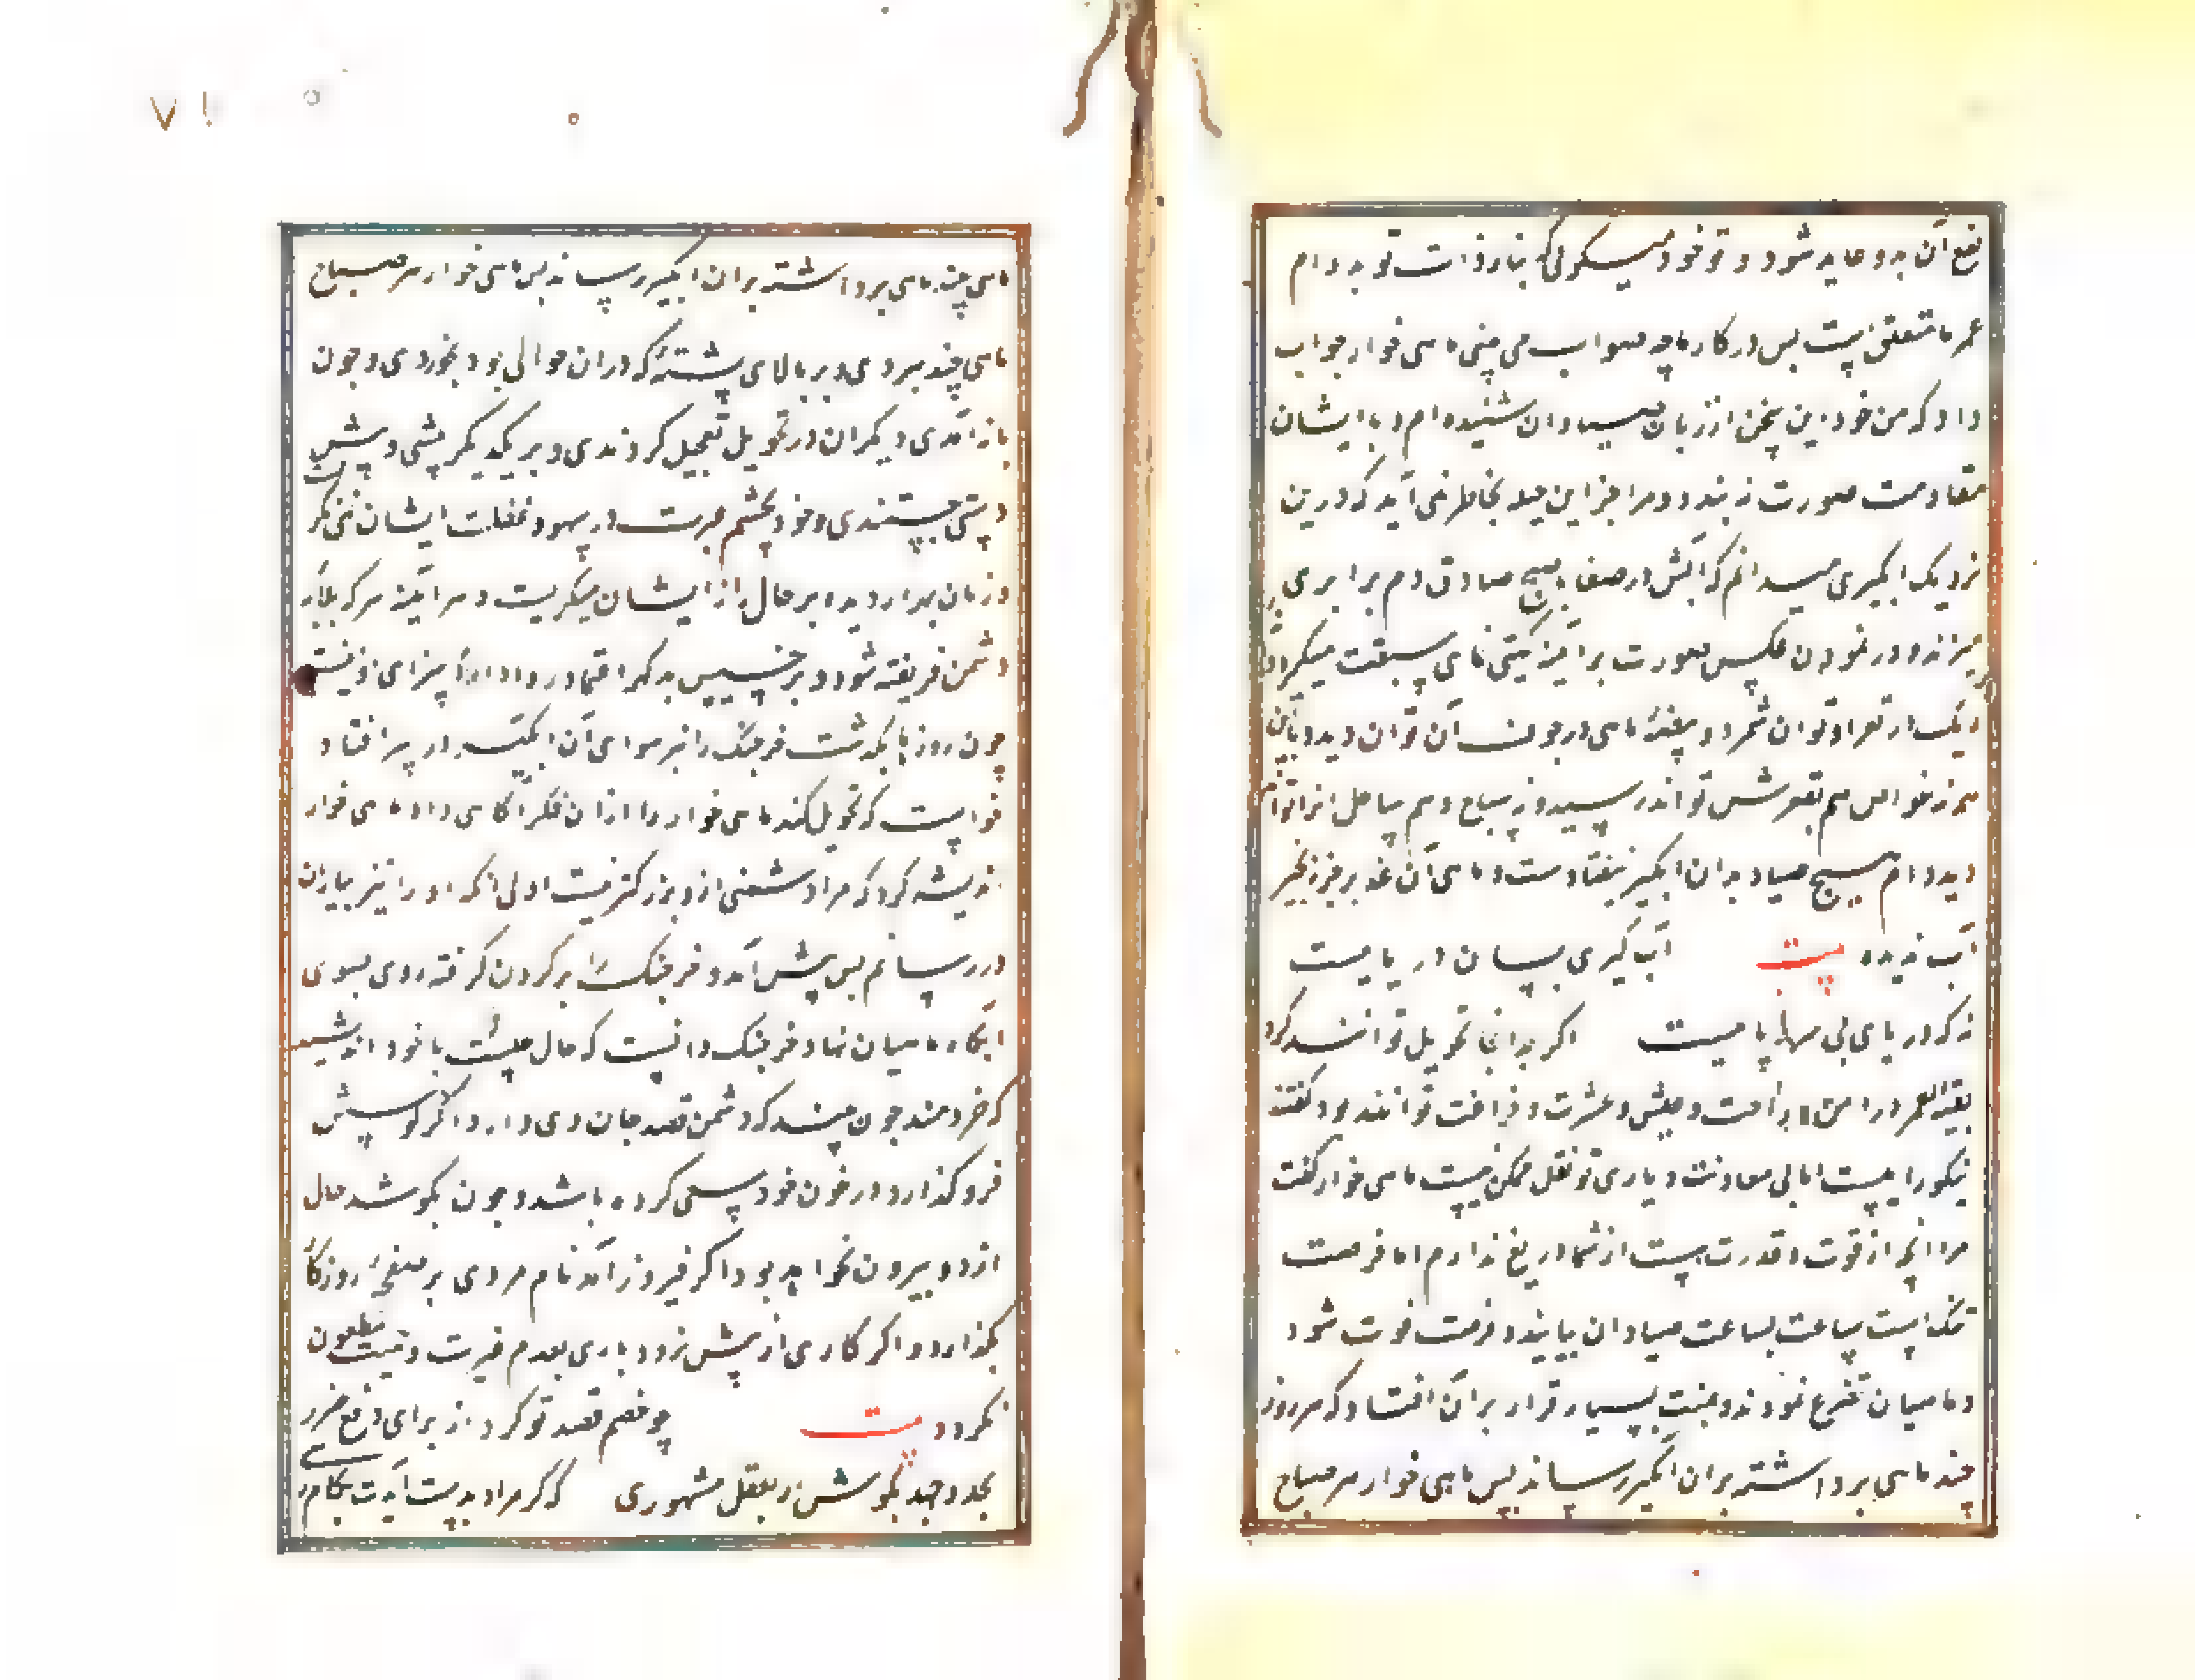 نفع آن بدو عاید شود و تو خود میکولی که بقاء ذات تو به دوام
عمر ما متعلق است پس در کار ما چه صواب می بینی ماهی خوار جواب
داد که من خود این سخن از زبان صیادان شنیده ام و با ایشان
مقاومت صورت نه بندد و مرا جز این حیله بخاطر نمی آید که درین
نزدیک آبکیری میدانم که آبش در صفا با صبح صادق دم برابری
میزند و در نمودن عکس صورت بر آینه کیتی نمای سبقت میکیرد
ریک در قعر او توان شمرد و بیضهٔ ماهی در جوف آن توان دید و با این
همه نه غواص هم بقعرش تواند رسید و نه سباح وهم ساحل او را تواند
دید دام هیچ صیاد بدان آبکیر نیفتادست و ماهی آن غدیر جز زنجیر
آب ندیده بیت آب کیری بسان دریاییست
نه که دریای بی سر و پاییست اکر بدانجا تحویل توانند کرد
بقیة العمر در امن و راحت و عیش و عشرت و فراغت توانند بود گفتند
نیکو راییست اما بی معاونت و یاری تو نقل ممکن نیست ماهی خوار کفت
مرا آنچه از قوت و قدرت هست از شما دریغ ندارم اما فرصت
تنک است ساعت بساعت صیادان بیایند و فرصت فوت شود
و ماهیان تضرع نمودند و بمنت بسیار قرار بر آن افتاد که هر روز
چند ماهی برداشته بران آبکیر رساند پس ماهی خوار هر صباح
ماهی چند ماهی برداشته بران آبکیر رساند پس ماهی خوار هر صباح
ماهی چند ببردی و بر بالای پشتهٔ که دران حوالی بود بخوردی و چون
باز آمدی دیکران در تحویل تعجیل کردندی و بر یکدیکر پیشی و پیش
دستی جستندی و خود بچشم عبرت در سهو و غفلت ایشان می نکر
و زمان بهزار دیده بر حال زار ایشان میکریست و هر آینه هر که بلابهٔ
دشمن فریفته شود و بر خسیس بد کهر اعتماد روا دارد سزای او اینست
چون روزها بکذشت خرچنک را نیز هوای آن آبکیر در سر افتاد
خواست که تحویل کند ماهی خوار را ازان فکر آکاهی داد ماهی خوار
اندیشه کرد که مرا دشمنی ازو بزرکتر نیست اولی آنکه او را نیز بیاران
در رسانم پس پیش آمد و خرچنک را بر کردن کرفته روی بسوی
آبکاه ماهیان نهاد خرچنک دانست که حال چیست با خود اندیشید
که خردمند چون بیند که دشمن قصد جان وی دارد اکر کوشش
فرو کذارد در خون خود سعی کرده باشد و چون بکوشد حال
از دو بیرون نخواهد بود اکر فیروز آمد نام مردی بر صفحهٔ روزکار
بکذارد و اکر کاری از پیش نرود باری بعدم غیرت و حمیت مطعون
نکردد بیت چو خصم قصد تو کرد از برای دفع ضرر
بجد و جهد بکوش ار بعقل مشهوری که کر مراد بدست آیدت بکام رسی